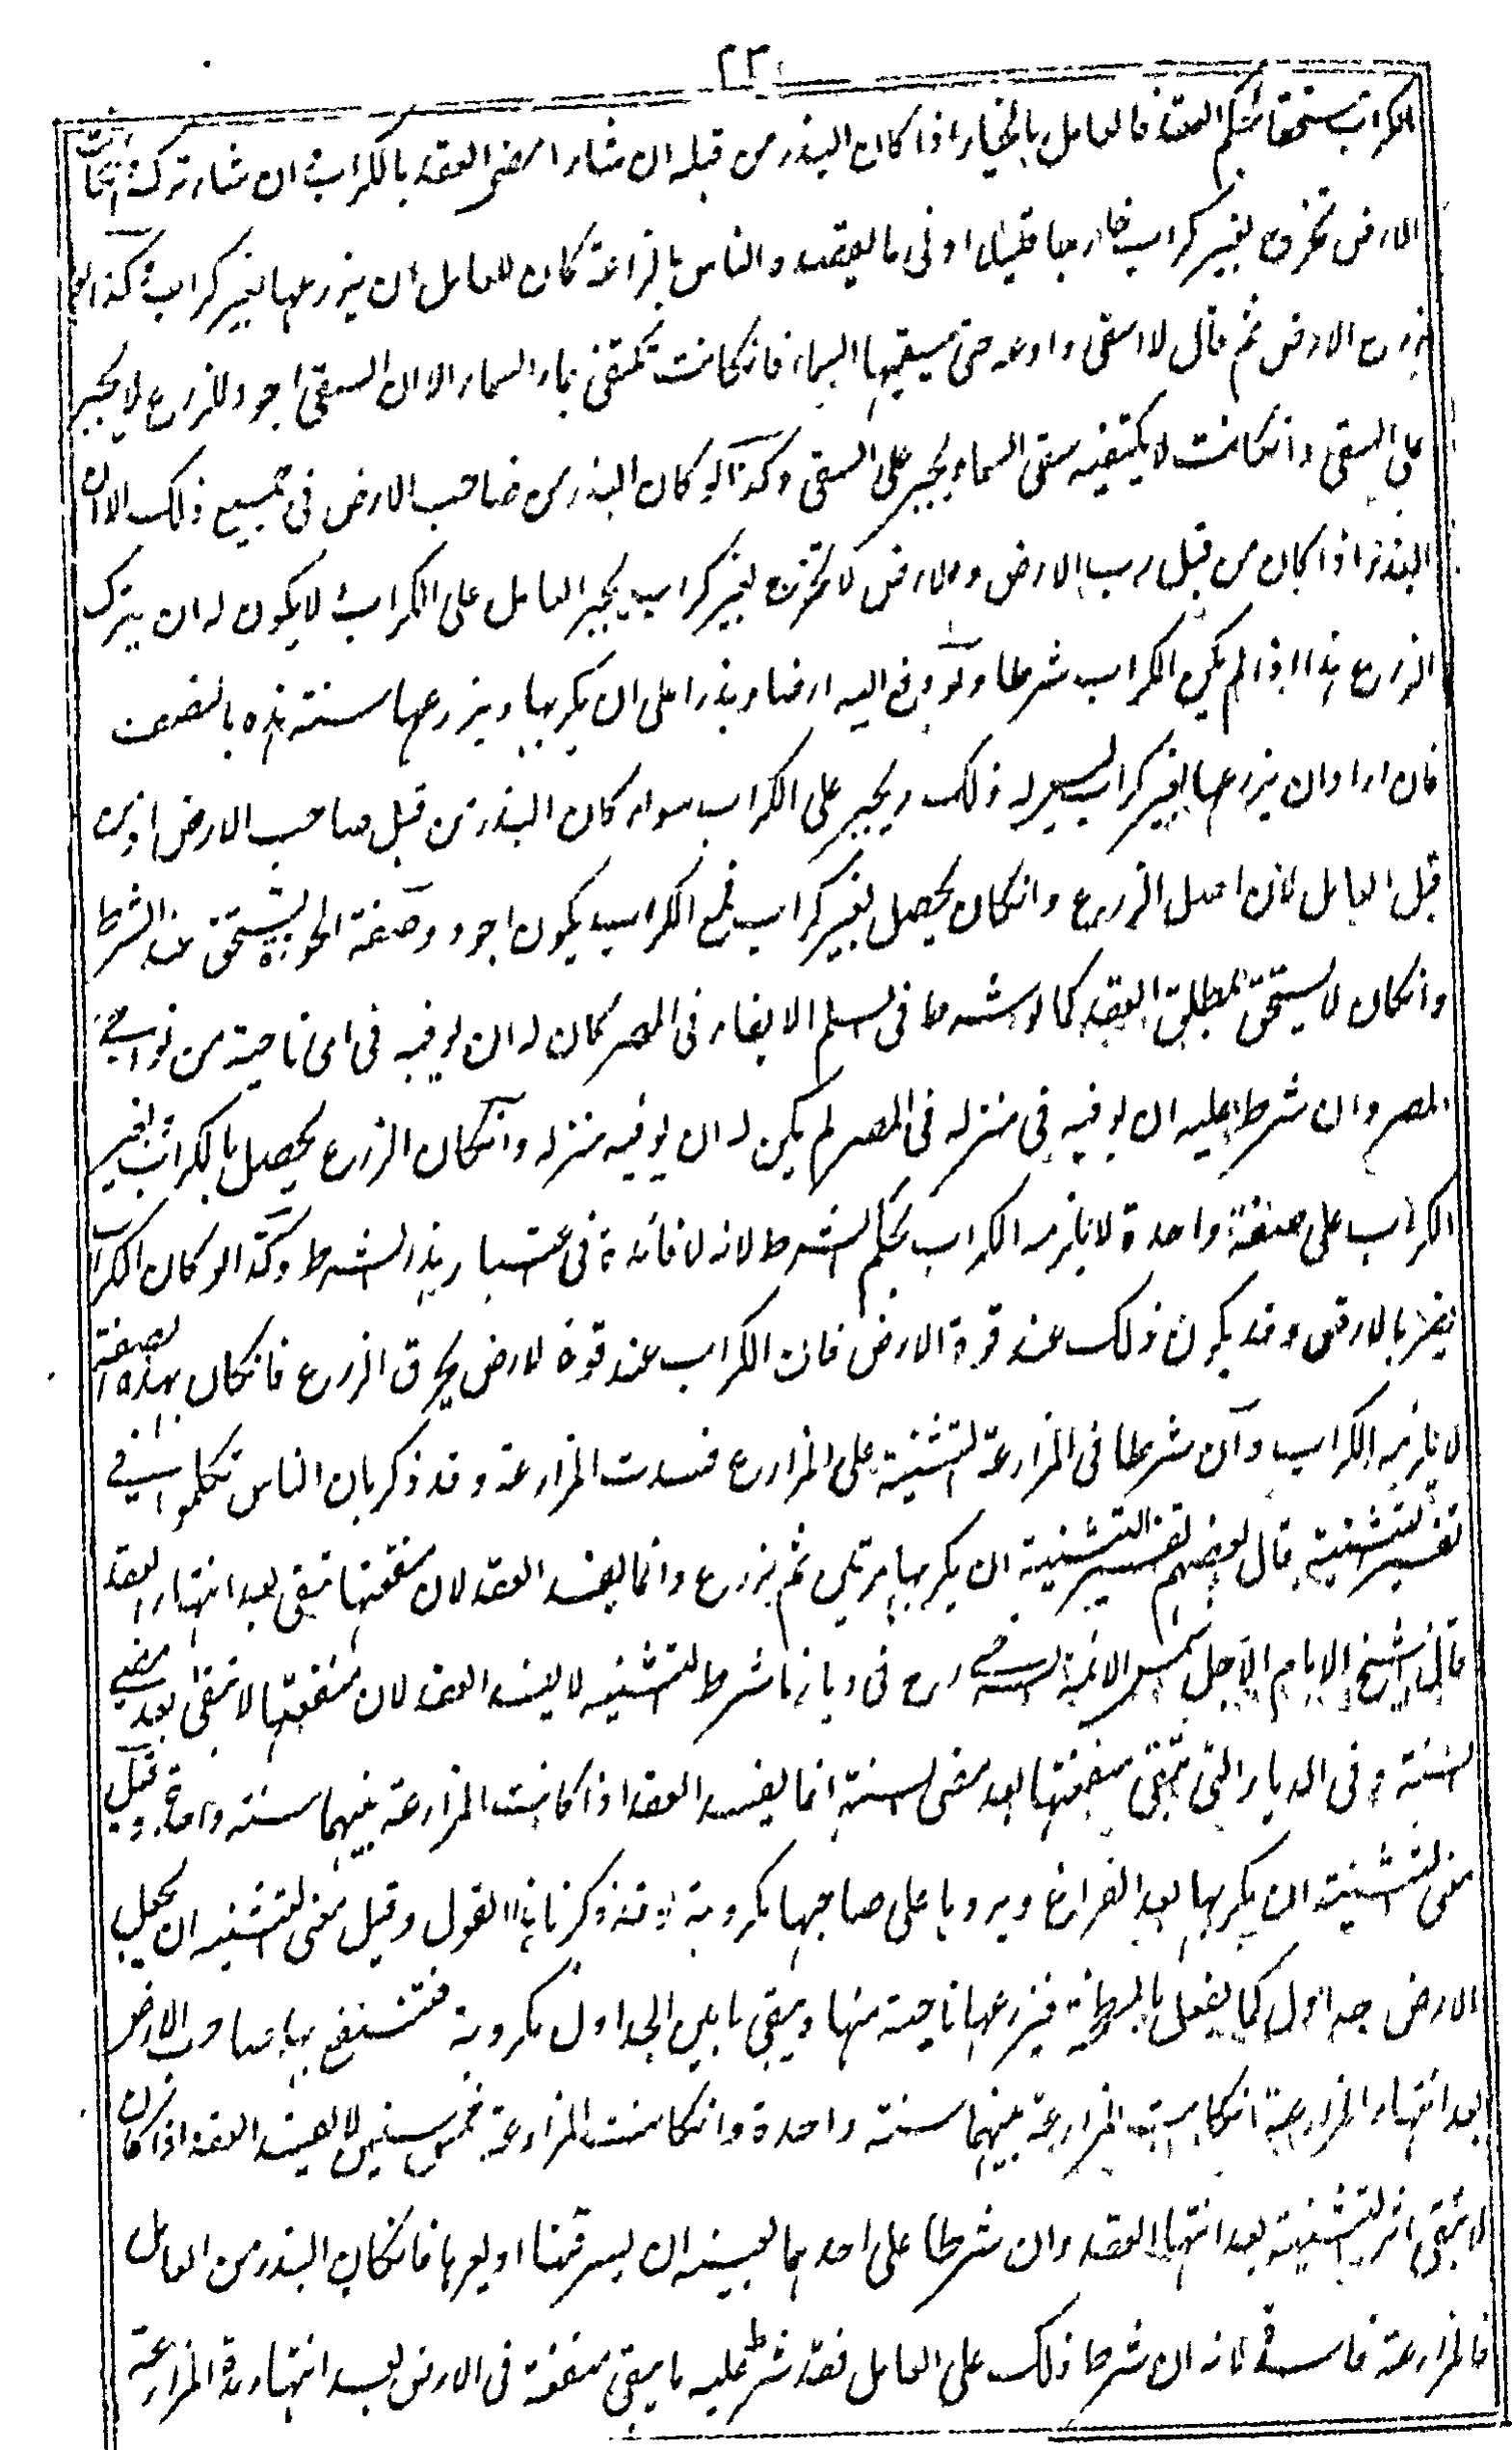 ٢٢٠
الكراب مستحقا بحكم العقد فالعامل بالخيار اذا كان البذر من قبله ان شاء امضى العقد بالكراب وان شاء ترك وان كانت
الارض تخرج بغير كراب خارجا قليلا ادنى ما يقصده الناس بالزراعة كان للعامل ان يزرعها بغير كراب وكذا لو
زرع الارض ثم قال لا اسقى وادعه حتى يسقيها السماء فانكانت تكتفى بماء السماء الا ان السقى اجود للزرع لا يجبر
على السقى وانكانت لا يكتفيه سقى السماء يجبر على السقى وكذا لو كان البذر من صاحب الارض فى جميع ذلك الا ان
البذر اذا كان من قبل رب الارض والارض لا تخرج بغير كراب يجبر العامل على الكراب ولا يكون له ان يترك
الزرع هذا اذا لم يكن الكراب شرطا ولو دفع اليه ارضا وبذرا على ان يكربها ويزرعها سنته هذه بالنصف
فان اراد ان يزرعها بغير كراب ليس له ذلك ويجبر على الكراب سواء كان البذر من قبل صاحب الارض او من
قبل العامل لان اصل الزرع وانكان يحصل بغير كراب فمع الكراب يكون اجود وصفة الجودة يستحق عند الشرط
وانكان لا يستحق بمطلق العقد كما لو شرط فى السلم الايفاء فى المصر كان له ان يوفيه فى اى ناحية من نواحى
المصر وان شرط عليه ان يوفيه فى منزله فى المصر لم يكن له ان يوفيه منزله وانكان الزرع يحصل بالكراب وبغير
الكراب على صفة واحدة لا يلزمه الكراب بحكم الشرط لانه لا فائدة فى اعتبار هذا الشرط وكذا لو كان الكراب
يضر بالارض وقد يكون ذلك عند قوة الارض فان الكراب عند قوة الارض يحرق الزرع فانكان بهذه الصفة
لا يلزمه الكراب وان شرطا فى المزارعة التثنية على المزارع فسدت المزارعة وقد ذكر بان الناس تكلموا فى
تفسير التثنية قال بعضهم تفسير التثنية ان يكربها مرتين ثم يزرع وانما يفسد العقد لان منفعتها تبقى بعد انتهاء العقد
قال الشيخ الامام الاجل شمس الائمة السرخسى رح فى ديارنا شرط التثنية لا يفسد العقد لان منفعتها لا تبقى بعد مضى
السنة وفى الديار التى تبقى منفعتها بعد مضى السنة انما يفسد العقد اذا كانت المزارعة بينهما سنة واحدة وقيل
معنى التثنية ان يكربها بعد الفراغ ويردها على صاحبها مكروبة وقد ذكرنا هذا القول وقيل معنى التثنية ان يجعل
الارض جداول كما يفعل بالمبطخة فيزرعها ناحية منها ويبقى ما بين الجداول مكروبة فتنتفع بها صاحب الارض
بعد انتهاء المزارعة انكانت المزارعة بينهما سنة واحدة وانكانت المزارعة خمس سنين لا يفسد العقد اذا كان
لا تبقى اثر التثنية بعد انتهاء العقد وان شرطا على احدهما بعينه ان يسرقنها او يعرها فانكان البذر من العامل
فالمزارعة فاسدة لانه ان شرطا ذلك على العامل فقد شرط عليه ما يبقى منفعة فى الارض بعد انتهاء مدة المزارعة